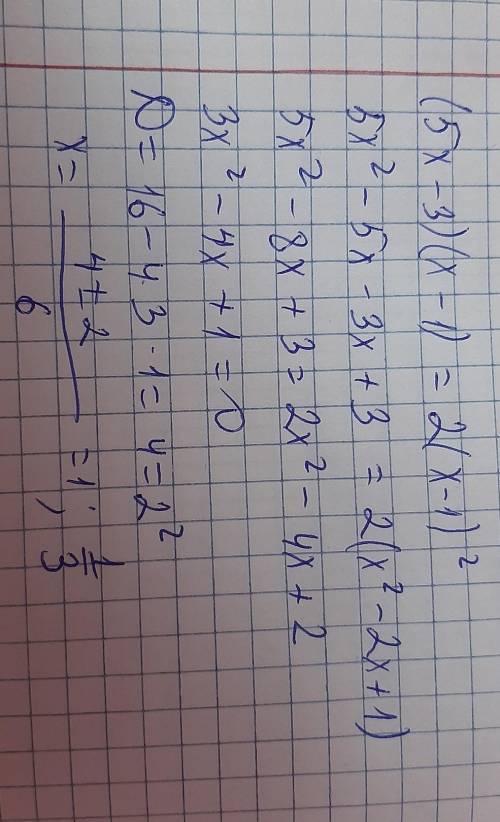 (5x - 3)(x - 1) = 2(x-1)²
5x² - 5x - 3x + 3 = 2(x² - 2x + 1)
5x² - 8x + 3 = 2x² - 4x + 2
3x² - 4x + 1 = 0
D = 16 - 4·3·1 = 4 = 2²
x = (4 ± 2)/6 = 1; 1/3